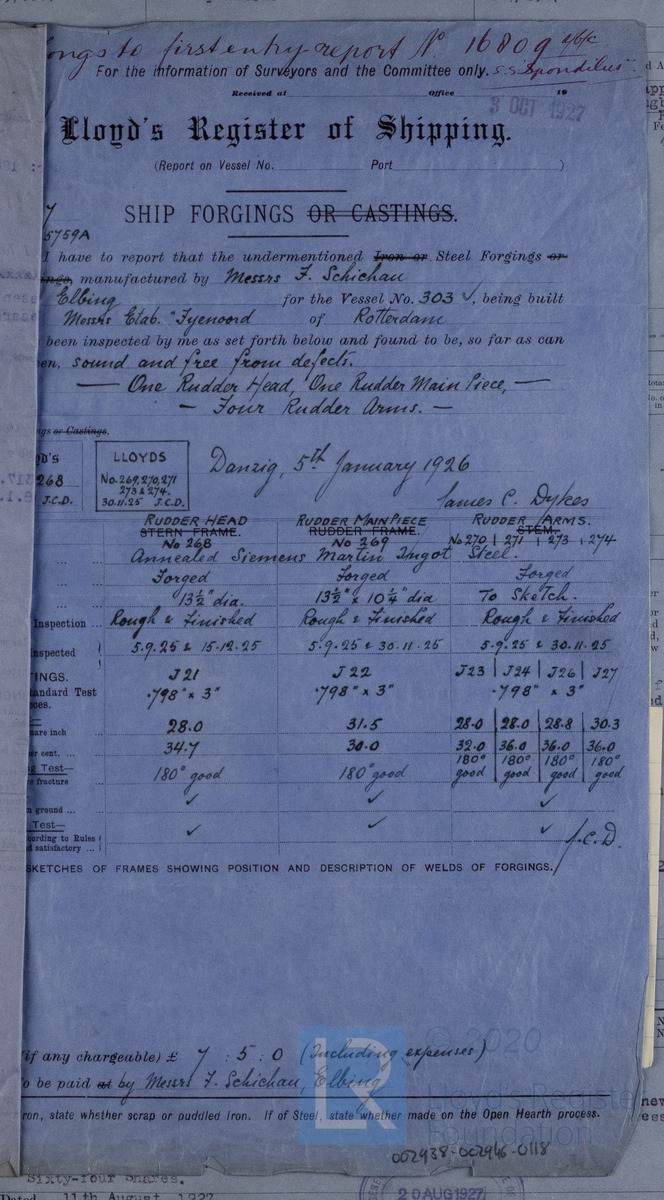 ongs to first entry report No 16809 a/b/c
For the information of Surveyors and the Committee only. S.S. "Spondilus"
Received at Office 19
3 OCT 1927
Lloyd's Register of Shipping.
(Report on Vessel No. Port )
7
SHIP FORGINGS OR CASTINGS.
5759A
I have to report that the undermentioned Iron or Steel Forgings or
ings, manufactured by Messrs F. Schichau
Elbing for the Vessel No. 303 ✓, being built
Messrs Etab. "Fyenoord of Rotterdam
been inspected by me as set forth below and found to be, so far as can
en, sound and free from defects.
— One Rudder Head, One Rudder Main Piece, —
— Four Rudder Arms. —
gs or Castings.
yd's
268
J.C.D.
LLOYDS
No. 269, 270, 271
273 & 274.
30.11.25 J.C.D.
Danzig, 5th January 1926
James C. Dykes
RUDDER HEAD RUDDER MAIN PIECE RUDDER ARMS.
STERN FRAME. RUDDER FRAME. STEM.
No 268 No 269 No 270 | 271 | 273 | 274
Annealed Siemens Martin Ingot Steel.
Forged Forged Forged
13½" dia. 13½" x 10¼" dia To Sketch.
Inspection ... Rough & Finished Rough & Finished Rough & Finished
nspected 5.9.25 & 15.12.25 5.9.25 & 30.11.25 5.9.25 & 30.11.25
INGS. J21 J22 J23 | J24 | J26 | J27
tandard Test ·798" x 3" ·798" x 3" ·798" x 3"
eces.
are inch 28.0 31.5 28.0 | 28.0 | 28.8 | 30.3
er cent. ... 34.7 30.0 32.0 | 36.0 | 36.0 | 36.0
g Test—
e fracture 180° good 180° good 180° good | 180° good | 180° good | 180° good
n ground ... ✓ ✓ ✓
Test—
cording to Rules
d satisfactory ... ✓ ✓ ✓ J.C.D.
SKETCHES OF FRAMES SHOWING POSITION AND DESCRIPTION OF WELDS OF FORGINGS.
if any chargeable) £ 7 : 5 : 0 (Including expenses)
o be paid at by Messrs F. Schichau, Elbing
ron, state whether scrap or puddled Iron. If of Steel, state whether made on the Open Hearth process.
© 2020
LR
Lloyd's Register
Foundation
002938-002946-0118
Sixty-four Shares.
Dated 11th August 1927
20 AUG 1927